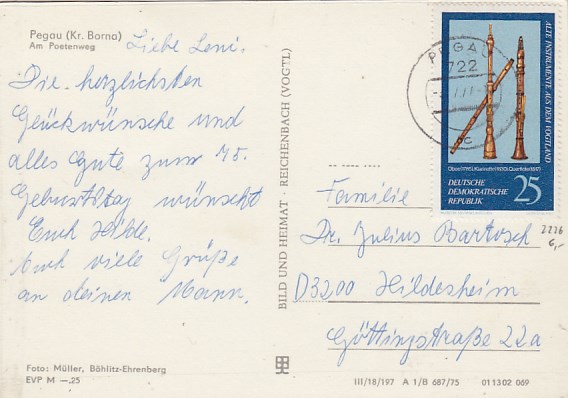 Pegau (Kr. Borna)
Am Poetenweg
Liebe Leni.
Die herzlichsten
Glückwünsche und
alles Gute zum 75.
Geburtstag wünscht
Euch Hilde.
Auch viele Grüße
an deinen Mann.
Foto: Müller, Böhlitz-Ehrenberg
EVP M —.25
BILD UND HEIMAT · REICHENBACH (VOGTL)
PEGAU
722
ALTE INSTRUMENTE AUS DEM VOGTLAND
DEUTSCHE
DEMOKRATISCHE
REPUBLIK
25
2226
6,-
Familie
Dr. Julius Bartosch
D3200 Hildesheim
Göttingstraße 22a
III/18/197 A 1/B 687/75 01 13 02 069